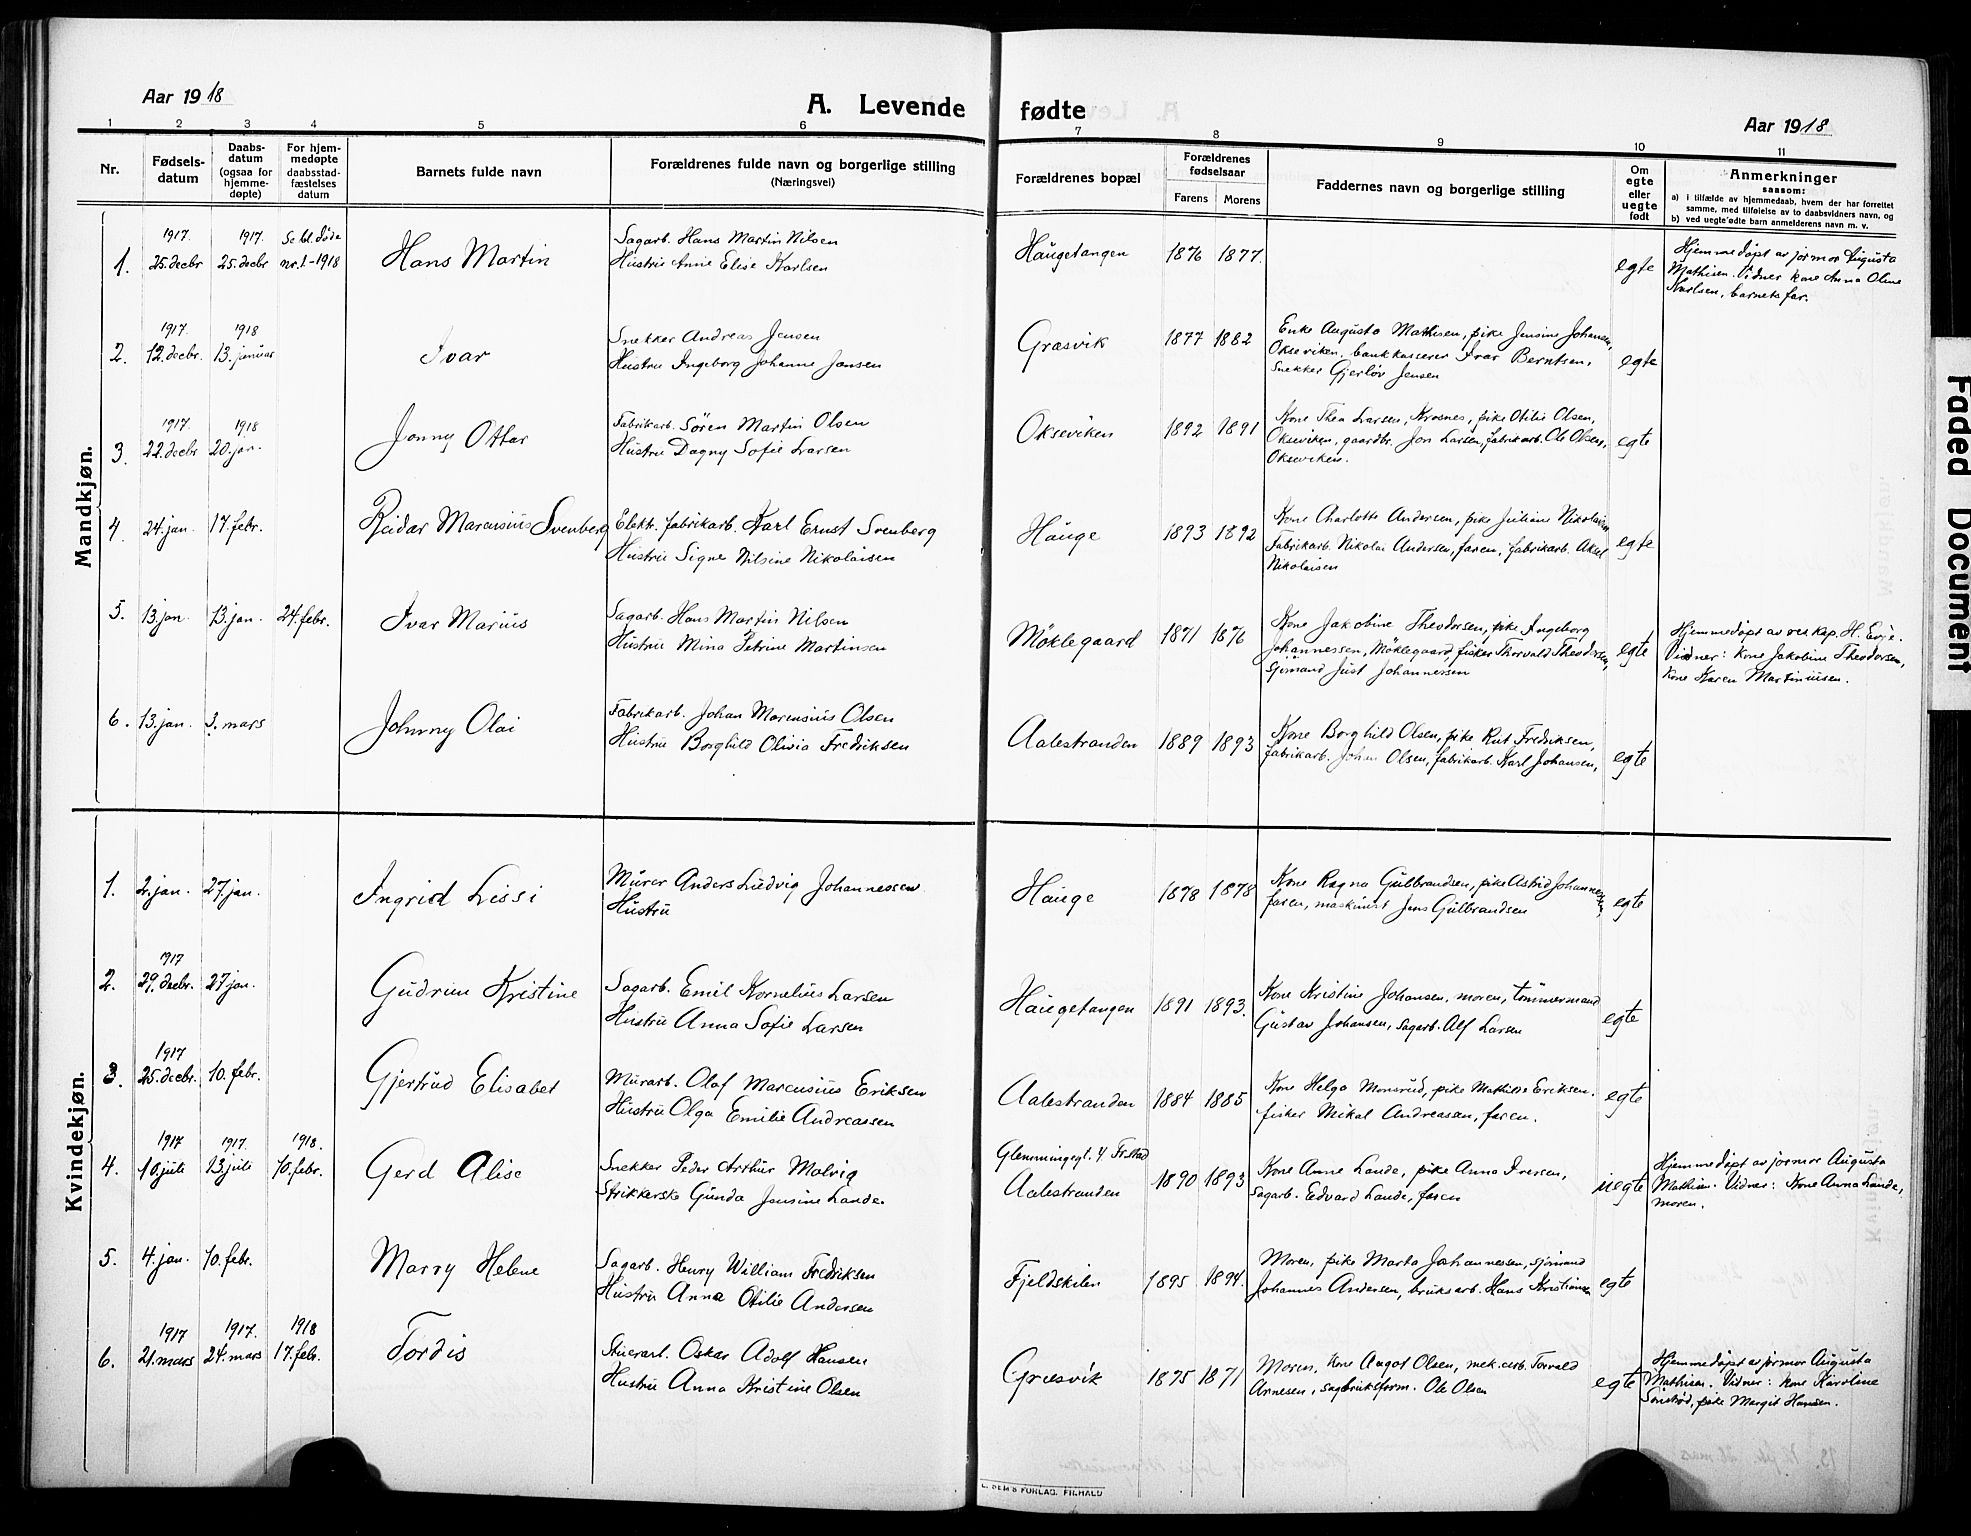 Aar 1918
A. Levende fødte
Aar 1918
1 2 3 4 5 6 7 8 9 10 11
Nr.
Fødsels-
datum
Daabs-
datum
(ogsaa for
hjemme-
døpte)
For hjem-
medøpte
daabsstad-
fæstelses
datum
Barnets fulde navn
Forældrenes fulde navn og borgerlige stilling
(Næringsvei)
Forældrenes bopæl
Forældrenes
fødselsaar
Farens Morens
Faddernes navn og borgerlige stilling
Om
egte
eller
uegte
født
Anmerkninger
saasom:
a) i tilfælde av hjemmedaab, hvem der har forrettet
samme, med tilføielse av to daabsvidners navn, og
b) ved uegte fødte barn anmelderens navn m. v.
Mandkjøn.
1. 1917 25. decbr 1917. 25. decbr Se bl. døde nr. 1-1918
Hans Martin
Sagarb. Hans Martin Nilsen
Hustru Anne Elise Karlsen
Haugetangen 1876 1877.
egte
Hjemmedøpt av jormor Augusta
Mathisen. Vidner kone Anna Oline
Karlsen, barnets far.
2. 1917. 12. decbr. 1918 13. januar
Ivar
Snekker Andreas Jensen
Hustru Ingeborg Johanne Jansen
Græsvik 1877 1882
Enke Augusta Mathisen, pike Jensine Johansen,
Okseviken, bankkasserer Ivar Berntsen,
snekker Gjerløv Jensen
egte
3. 1917. 22. decbr 1918 20. jan.
Jonny Ottar
Fabrikarb. Søren Martin Olsen
Hustru Dagny Sofie Larsen
Okseviken 1892 1891
Kone Thea Larsen, Krosnes, pike Otilie Olsen,
Okseviken, gaardbr. Jon Larsen, fabrikarb. Ole Olsen,
Okseviken.
egte
4 24. jan. 17. febr.
Reidar Marcusius Svenberg
Elektr. fabrikarb. Karl Ernst Svenberg
Hustru Signe Nilsine Nikolaisen
Hauge 1893 1892
Kone Charlotte Andersen, pike Juliane Nikolaisen
Fabrikarb. Nikolai Andersen, faren, fabrikarb. Aksel
Nikolaisen
egte
5. 13. jan. 13. jan. 24. febr.
Ivar Marius
Sagarb. Hans Martin Nilsen
Hustru Mina Petrine Martinsen
Møklegaard 1871 1876
Kone Jakobine Theodorsen, pike Ingeborg
Johannessen, Møklegaard, fisker Thorvald Theodorsen,
sjømand Just Johannessen
egte
Hjemmedøpt av res. kap. H. Evje.
Vidner: Kone Jakobine Theodorsen,
kone Karen Martiniusen.
6. 13. jan. 3. mars
Johnny Olai
Fabrikarb. Johan Marensius Olsen
Hustru Borghild Olivia Fredriksen
Aalestranden 1889 1893
Kone Borghild Olsen, pike Rut Fredriksen,
fabrikarb. Johan Olsen, fabrikarb. Karl Johansen,
egte
Kvindekjøn.
1. 2. jan. 27. jan.
Ingrid Lissi
Murer Anders Ludvig Johannessen
Hustru
Hauge 1878 1878
Kone Ragna Gulbrandsen, pike Astrid Johannessen,
faren, maskinist Jens Gulbrandsen
egte
2. 1917 29. decbr. 27 jan.
Gudrun Kristine
Sagarb. Emil Kornelius Larsen
Hustru Anna Sofie Larsen
Haugetangen 1891 1893.
Kone Kristine Johansen, moren, tømmermand
Gustav Johansen, sagarb. Alf Larsen
egte
3. 1917 25. decbr. 10. febr.
Gjertrud Elisabet
Murarb. Olaf Marcusius Eriksen
Hustru Olga Emilie Andreassen
Aalestranden 1884 1885
Kone Helga Monsrud, pike Mathilde Eriksen.
fisker Mikal Andreasen, faren.
egte
4. 1917 10. juli 1917. 13. juli 1918. 10. febr.
Gerd Alise
Snekker Peder Arthur Molvig
Strikkerske Gunda Jensine Lande.
Glemmingegt. 4 Fr.stad
Aalestranden 1890 1893
Kone Anne Lande, pike Anna Iversen,
sagarb. Edvard Lande, faren
uegte
Hjemmedøpt av jormor Augusta
Mathisen. Vidner: Kone Anna Lande,
moren.
5. 4. jan. 10. febr.
Marry Helene
Sagarb. Henry William Fredriksen
Hustru Anna Otilie Andersen
Fjeldskilen 1895 1894.
Moren, pike Marta Johannessen, sjømand
Johannes Andersen, bruksarb. Hans Kristiansen
egte
6. 1917 21. mars 1917. 24. mars 1918 17. febr.
Tordis
Stuerarb. Oskar Adolf Hansen
Hustru Anna Kristine Olsen
Græsvik 1875 1871
Moren, kone Aagot Olsen, mek. arb. Torvald
Arnesen, sagbruksform. Ole Olsen
egte
Hjemmedøpt av jormor Augusta
Mathisen. Vidner: kone Karoline
pike Margit Hansen.
SEM'S FORLAG, FR.HALD
Faded Document